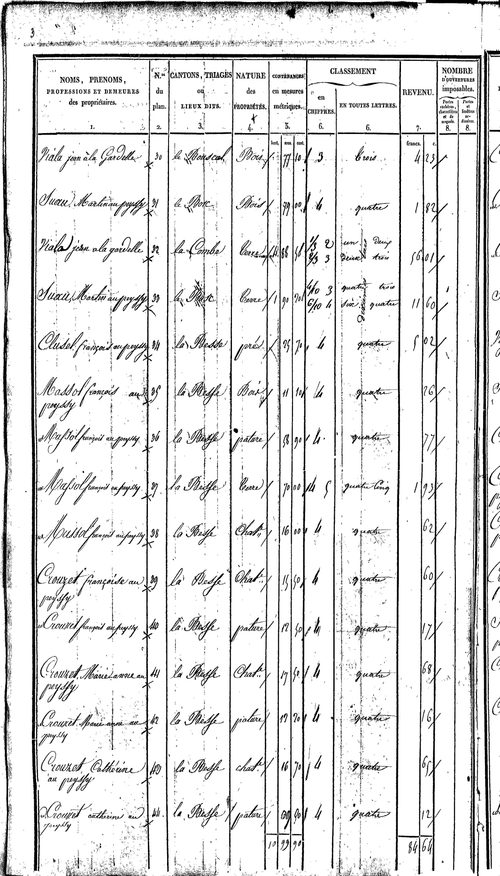 3
NOMS, PRÉNOMS, PROFESSIONS ET DEMEURES des propriétaires. 1.
N.os du plan. 2.
CANTONS, TRIAGES ou LIEUX DITS. 3.
NATURE des PROPRIÉTÉS. 4.
CONTENANCES en mesures métriques. 5.
CLASSEMENT
en CHIFFRES. 6.
EN TOUTES LETTRES. 6.
REVENU. 7.
NOMBRE D'OUVERTURES imposables.
8. 8.
francs. c.
Viala jean à la Gardelle 30 le Bouscal Bois 77 10 3 trois 4 23
Suau, Martin au peyssy 31 le Bose Bois 39 00 4 quatre 1 82
Viala jean a la gardelle 32 la Combe Terre 88 50 1/3 2 un tiers deux
2/3 3 deux tiers trois 56 01
Suau, Martin au peyssy 33 le Terre 1 90 4/10 3 quatre trois
6/10 4 six dixièmes quatre 11 60
Cludel françois au peyssy 34 la Besse prés 25 70 4 quatre 5 02
Massol françois au peyssy 35 la Besse Bois 11 10 4 quatre 26
Massol françois au peyssy 36 la Besse pature 58 90 4 quatre 77
Massol françois au peyssy 37 la Besse Terre 70 00 4 5 quatre Cinq 1 93
Massol françois au peyssy 38 la Besse Chat.s 16 00 4 quatre 62
Crouzet françoise au peyssy 39 la Besse Chat.s 15 50 4 quatre 60
Crouzet françoise au peyssy 40 la Besse pature 12 50 4 quatre 17
Crouzet Marie anne au peyssy 41 la Besse Chat.s 17 50 4 quatre 68
Crouzet Marie anne au peyssy 42 la Besse pature 12 20 4 quatre 16
Crouzet Cathérine au peyssy 43 la Besse chat.s 16 70 4 quatre 65
Crouzet catherine au peyssy 44 la Besse pature 09 20 4 quatre 12
10 99 90 84 64